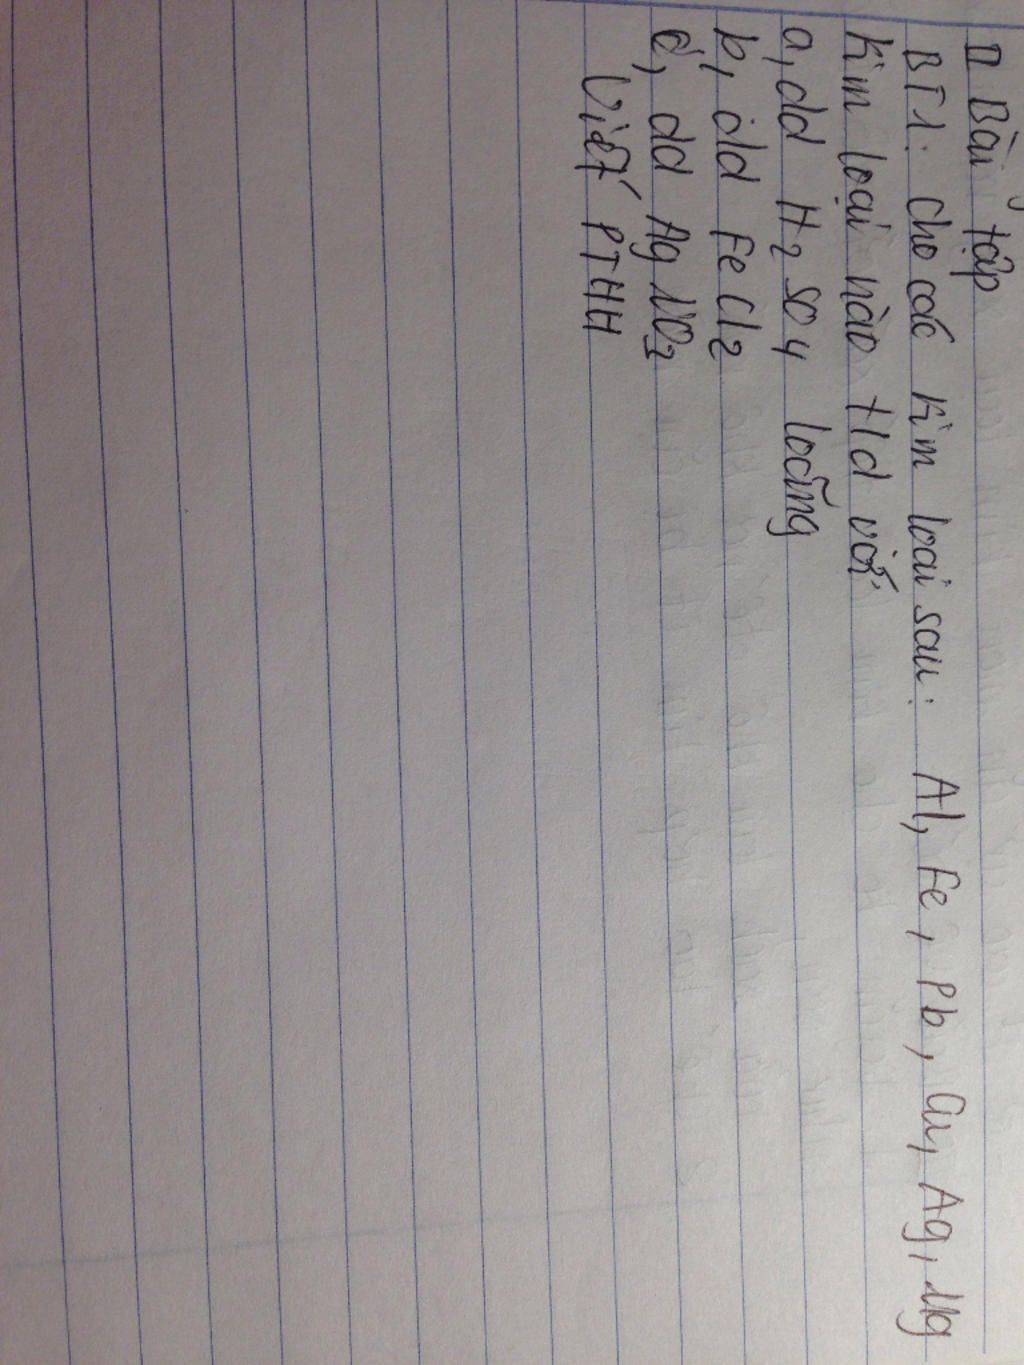 II Bài tập
BT1: Cho các kim loại sau: Al, Fe, Pb, Cu, Ag, Mg
Kim loại nào t/d với
a, dd H2SO4 loãng
b, dd FeCl2
c, dd AgNO3
Viết PTHH